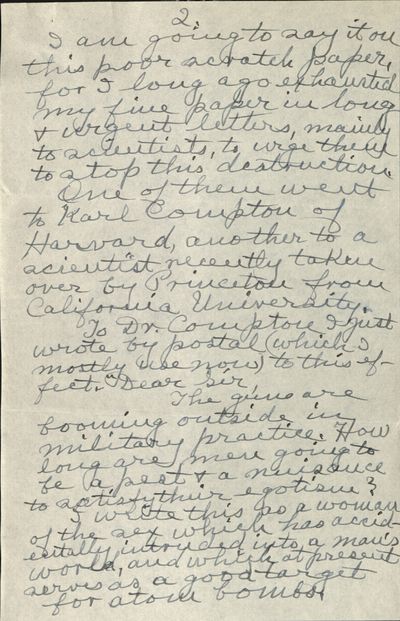 2
I am going to say it on
this poor scratch paper,
for I long ago exhausted
my fine paper in long
& urgent letters, mainly
to scientists, to urge them
to stop this destruction.
One of them went
to Karl Compton of
Harvard, another to a
scientist recently taken
over by Princeton from
California University.
To Dr. Compton I just
wrote by postal (which I
mostly use now) to this ef-
fect. "Dear Sir,
The guns are
booming outside in
military practice. How
long are men going to
be a pest & a nuisance
to satisfy their egotism?
I write this as a woman
of the sex which has accid-
entally intruded into a man's
world, and which at present
serves as a good target
for atom bombs.